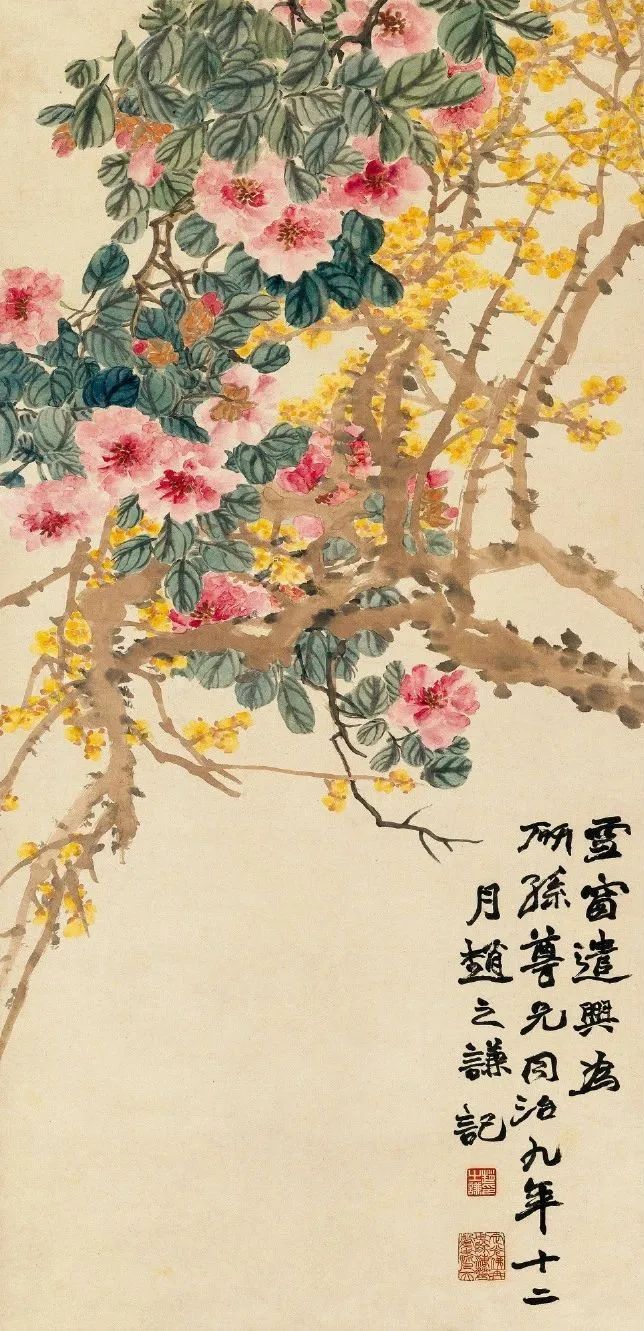 雪窗遣興為
研孫尊兄同治九年十二
月趙之謙記